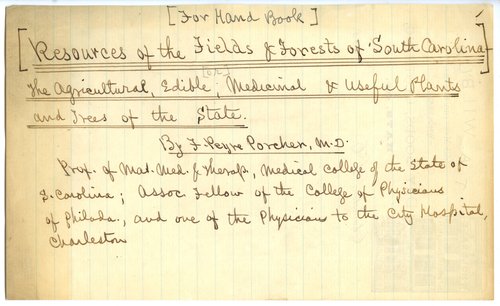 [For Hand Book]
[Resources of the Fields & Forests of South Carolina
The Agricultural, Edible, [or] Medicinal & Useful Plants
and Trees of the State.
By F. Peyre Porcher, M.D.
Prof. of Mat. Med. & Therap., Medical College of the State of
S. Carolina; Assoc. Fellow of the College of Physicians
of Philada., and one of the Physicians to the City Hospital,
Charleston